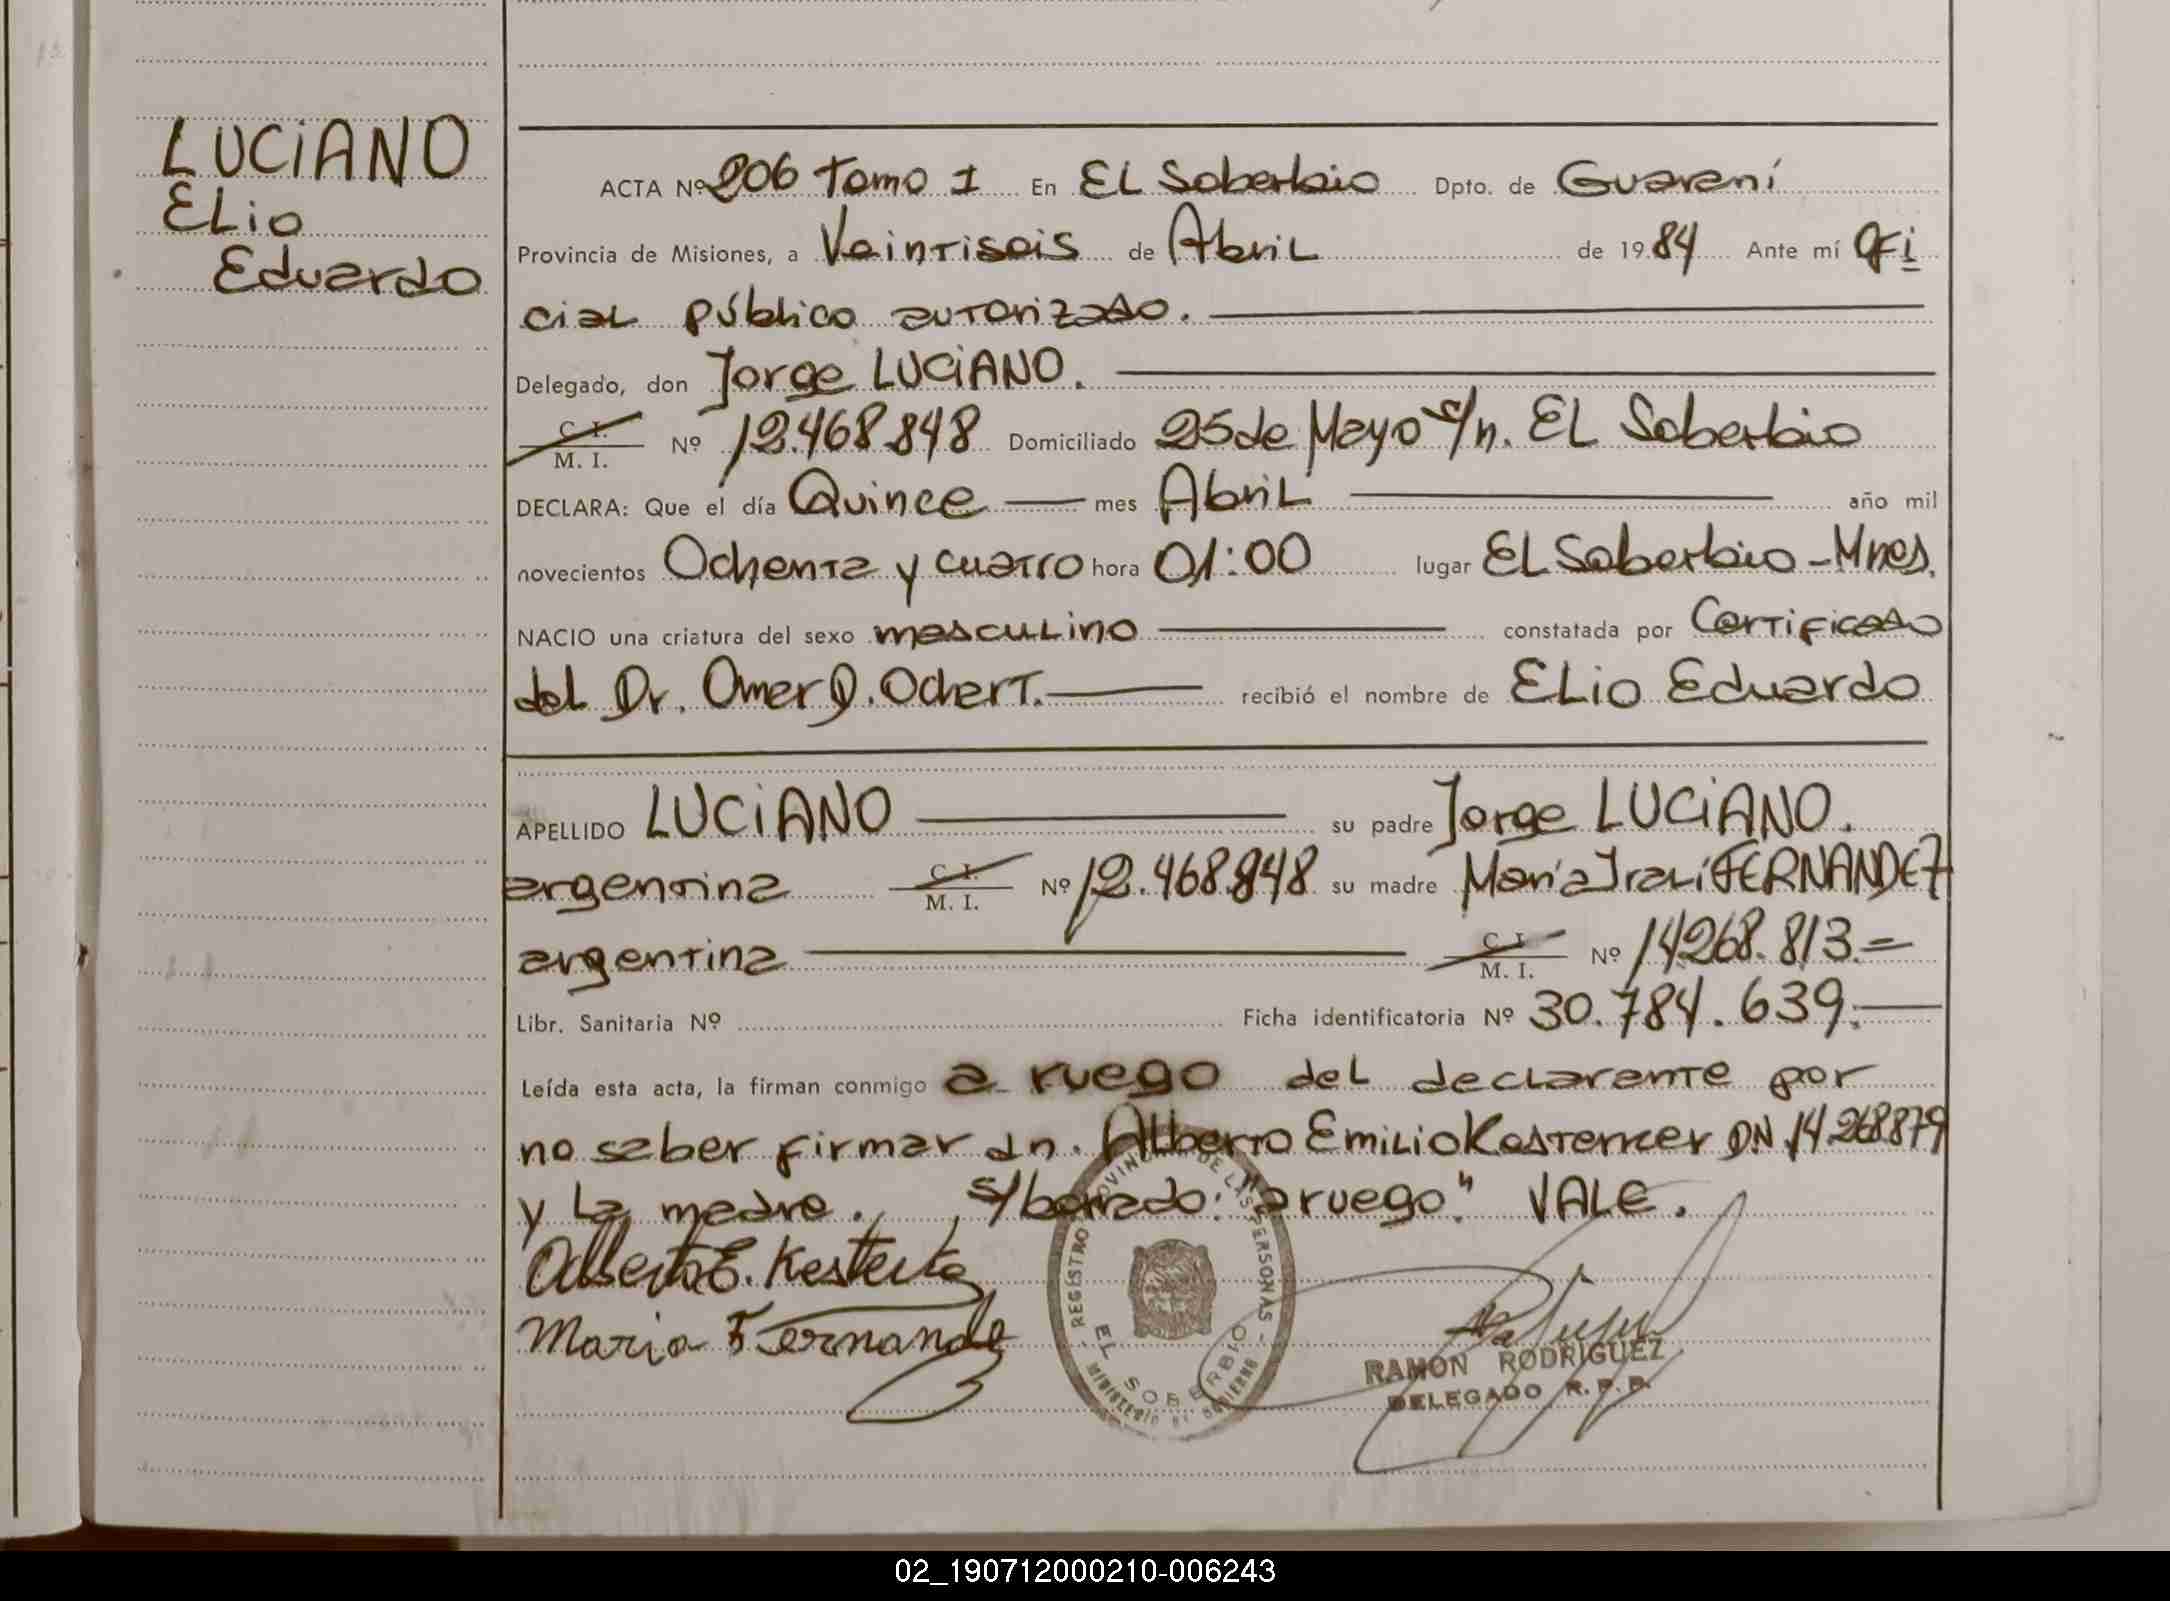 LUCiANO
ELio
Eduardo
ACTA Nº 206 Tomo 1 En EL Soberbio Dpto. de Guaraní
Provincia de Misiones, a Veintiseis de Abril de 1984 Ante mí Ofi
cial público autorizado.
Delegado, don Jorge LUCiANO.
C. I.
M. I. Nº 12.468.848 Domiciliado 25 de Mayo s/n. EL Soberbio
DECLARA: Que el día Quince mes Abril año mil
novecientos Ochenta y cuatro hora 01:00 lugar EL Soberbio - Mnes.
NACIO una criatura del sexo masculino constatada por Certificado
del Dr. Omer D. Ochert. recibió el nombre de ELio Eduardo
APELLIDO LUCiANO su padre Jorge LUCiANO.
argentina C. I.
M. I. Nº 12.468.848 su madre María Iraví FERNANDEZ
argentina C. I.
M. I. Nº 14268.813.=
Libr. Sanitaria Nº Ficha identificatoria Nº 30.784.639.
Leída esta acta, la firman conmigo a ruego del declarante por
no saber firmar dn. Alberto Emilio DN 14.268879
y la madre. s/borrado: "a ruego." VALE.
Alberto E.
Maria F Fernande
REGISTRO PROVINCIAL DE LAS PERSONAS
EL SOBERBIO
MINISTERIO DE GOBIERNO
RAMON RODRIGUEZ
DELEGADO R.P.P.
02_190712000210-006243